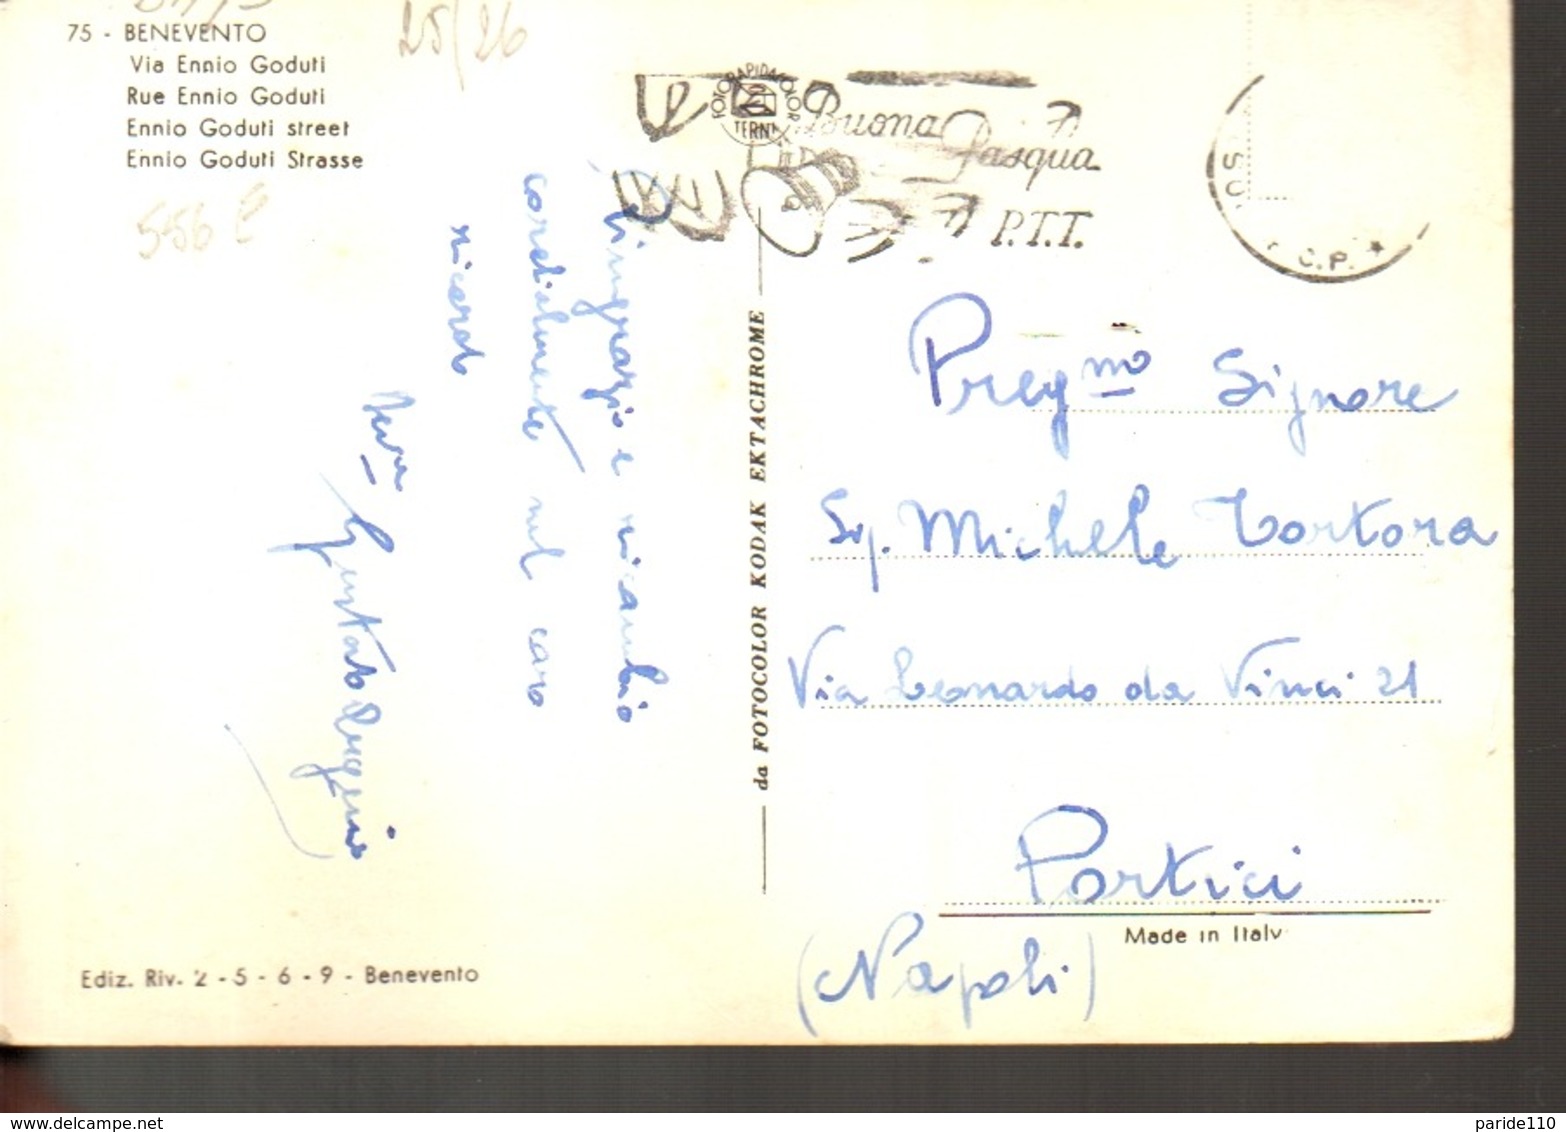 75 - BENEVENTO
Via Ennio Goduti
Rue Ennio Goduti
Ennio Goduti street
Ennio Goduti Strasse
25/26
556
FOTORAPIDACOLOR
TERNI
Buona
Pasqua
P.T.T.
C.P. *
ringrazio e ricambio
cordialmente nel caro
ricordo
da FOTOCOLOR KODAK EKTACHROME
Preg mo Signore
Sig. Michele Tortora
Via Leonardo da Vinci 21
Portici
Made in Italy
(Napoli)
Ediz. Riv. 2 - 5 - 6 - 9 - Benevento
delcampe.net
paride110